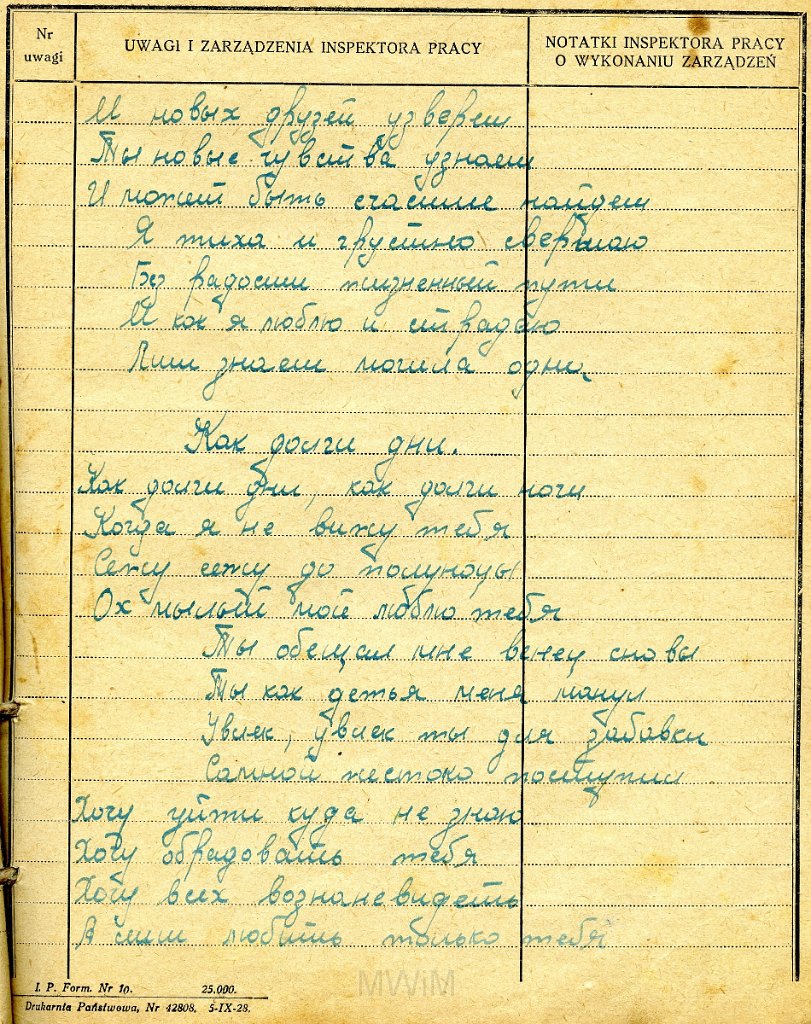 Nr
uwagi
UWAGI I ZARZĄDZENIA INSPEKTORA PRACY
NOTATKI INSPEKTORA PRACY
O WYKONANIU ZARZĄDZEŃ
И новых друзей узвереш
Ты новые чувства узнаеш
И может быть счастие найдеш
Я тиха и грустно свершаю
Без радости жизненный пути
И как я люблю и страдаю
Лиш знаеш могила одна
Как долги дни.
Как долги дни, как долги ночи
Когда я не вижу тебя
Сежу сежу до полуночы
Ох мылый мой люблю тебя
Ты обещал мне венец славы
Ты как детья меня манул
Увлек, увлек ты для забавки
Самной жестоко поступил
Хочу уйти куда не знаю
Хочу обрадовать тебя
Хочу всех вознаневидеть
А лиш любить только тебя
MWiM
I. P. Form. Nr 10. 25.000.
Drukarnia Państwowa, Nr 42808. 5-IX-28.